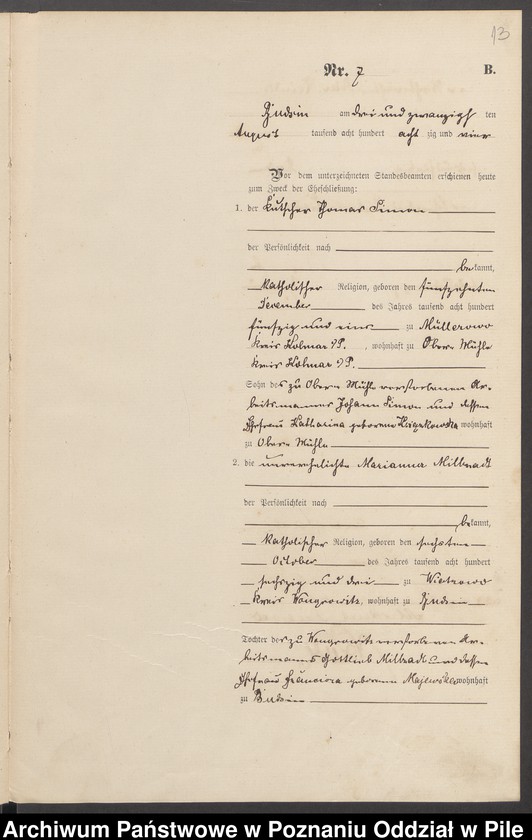 13
Nr. 7 B.
Budsin am drei und zwanzigsten
August tausend acht hundert acht zig und vier
Vor dem unterzeichneten Standesbeamten erschienen heute
zum Zweck der Eheschließung:
1. der Kutscher Thomas Simon
der Persönlichkeit nach
bekannt,
katholischer Religion, geboren den fünfzehnten
Dezember des Jahres tausend acht hundert
fünfzig und eins zu Müllerowo
Kreis Kolmar i/P. , wohnhaft zu Obere Mühle
Kreis Kolmar i/P.
Sohn des zu Obere Mühle verstorbenen Ar-
beitsmannes Johann Simon und dessen
Ehefrau Katharina geborene wohnhaft
zu Obere Mühle
2. die unverehelichte Marianna Milbradt
der Persönlichkeit nach
bekannt,
katholischer Religion, geboren den sechsten
October des Jahres tausend acht hundert
sechszig und drei zu
Kreis Wongrowitz, wohnhaft zu Budsin
Tochter des zu Wongrowitz verstorbenen Ar-
beitsmanns Gottlieb Milbradt und dessen
Ehefrau Francisca geborene Majewska wohnhaft
zu Budsin
Archiwum Państwowe w Poznaniu Oddział w Pile